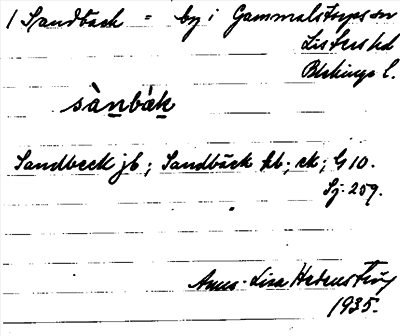 1 Sandbäck = by i Gammalstorps sn
Listers hd
Blekinge l.
sànbæk
Sandbeck jb; Sandbäck kb; ek; G 10.
Sj. 259.
Anna-Lisa
1935.